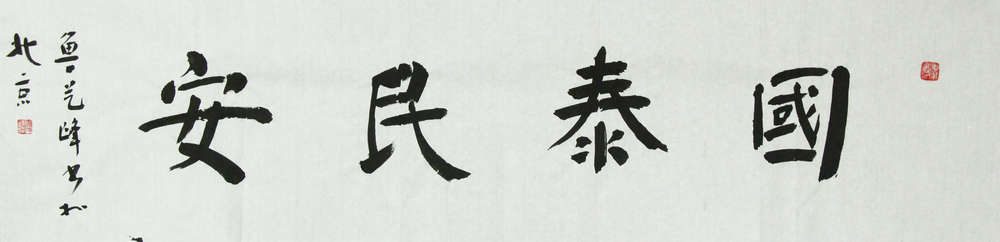 國泰民安
魯藝峰書於
北京